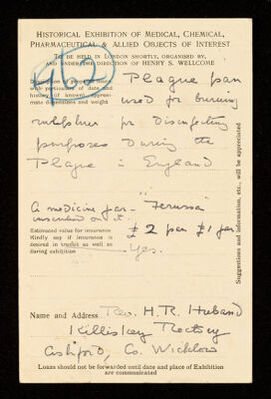 HISTORICAL EXHIBITION OF MEDICAL, CHEMICAL,
PHARMACEUTICAL & ALLIED OBJECTS OF INTEREST
TO BE HELD IN LONDON SHORTLY, ORGANISED BY,
AND UNDER THE DIRECTION OF HENRY S. WELLCOME
962
Plague pan
with particulars of date and
history if known, approxi-
mate dimensions and weight
used for burning
sulphur for disinfecting
purposes during the
Plague in England
A medicine jar -
inscribed on it.
Estimated value for insurance
£2 pan £1 jar
Kindly say if insurance is
desired in transit as well as
during exhibition
Yes.
Suggestions and information, etc., will be appreciated
Name and Address Rev. H. R. Huband
Killiskey Rectory
Ashford, Co. Wicklow
Loans should not be forwarded until date and place of Exhibition
are communicated